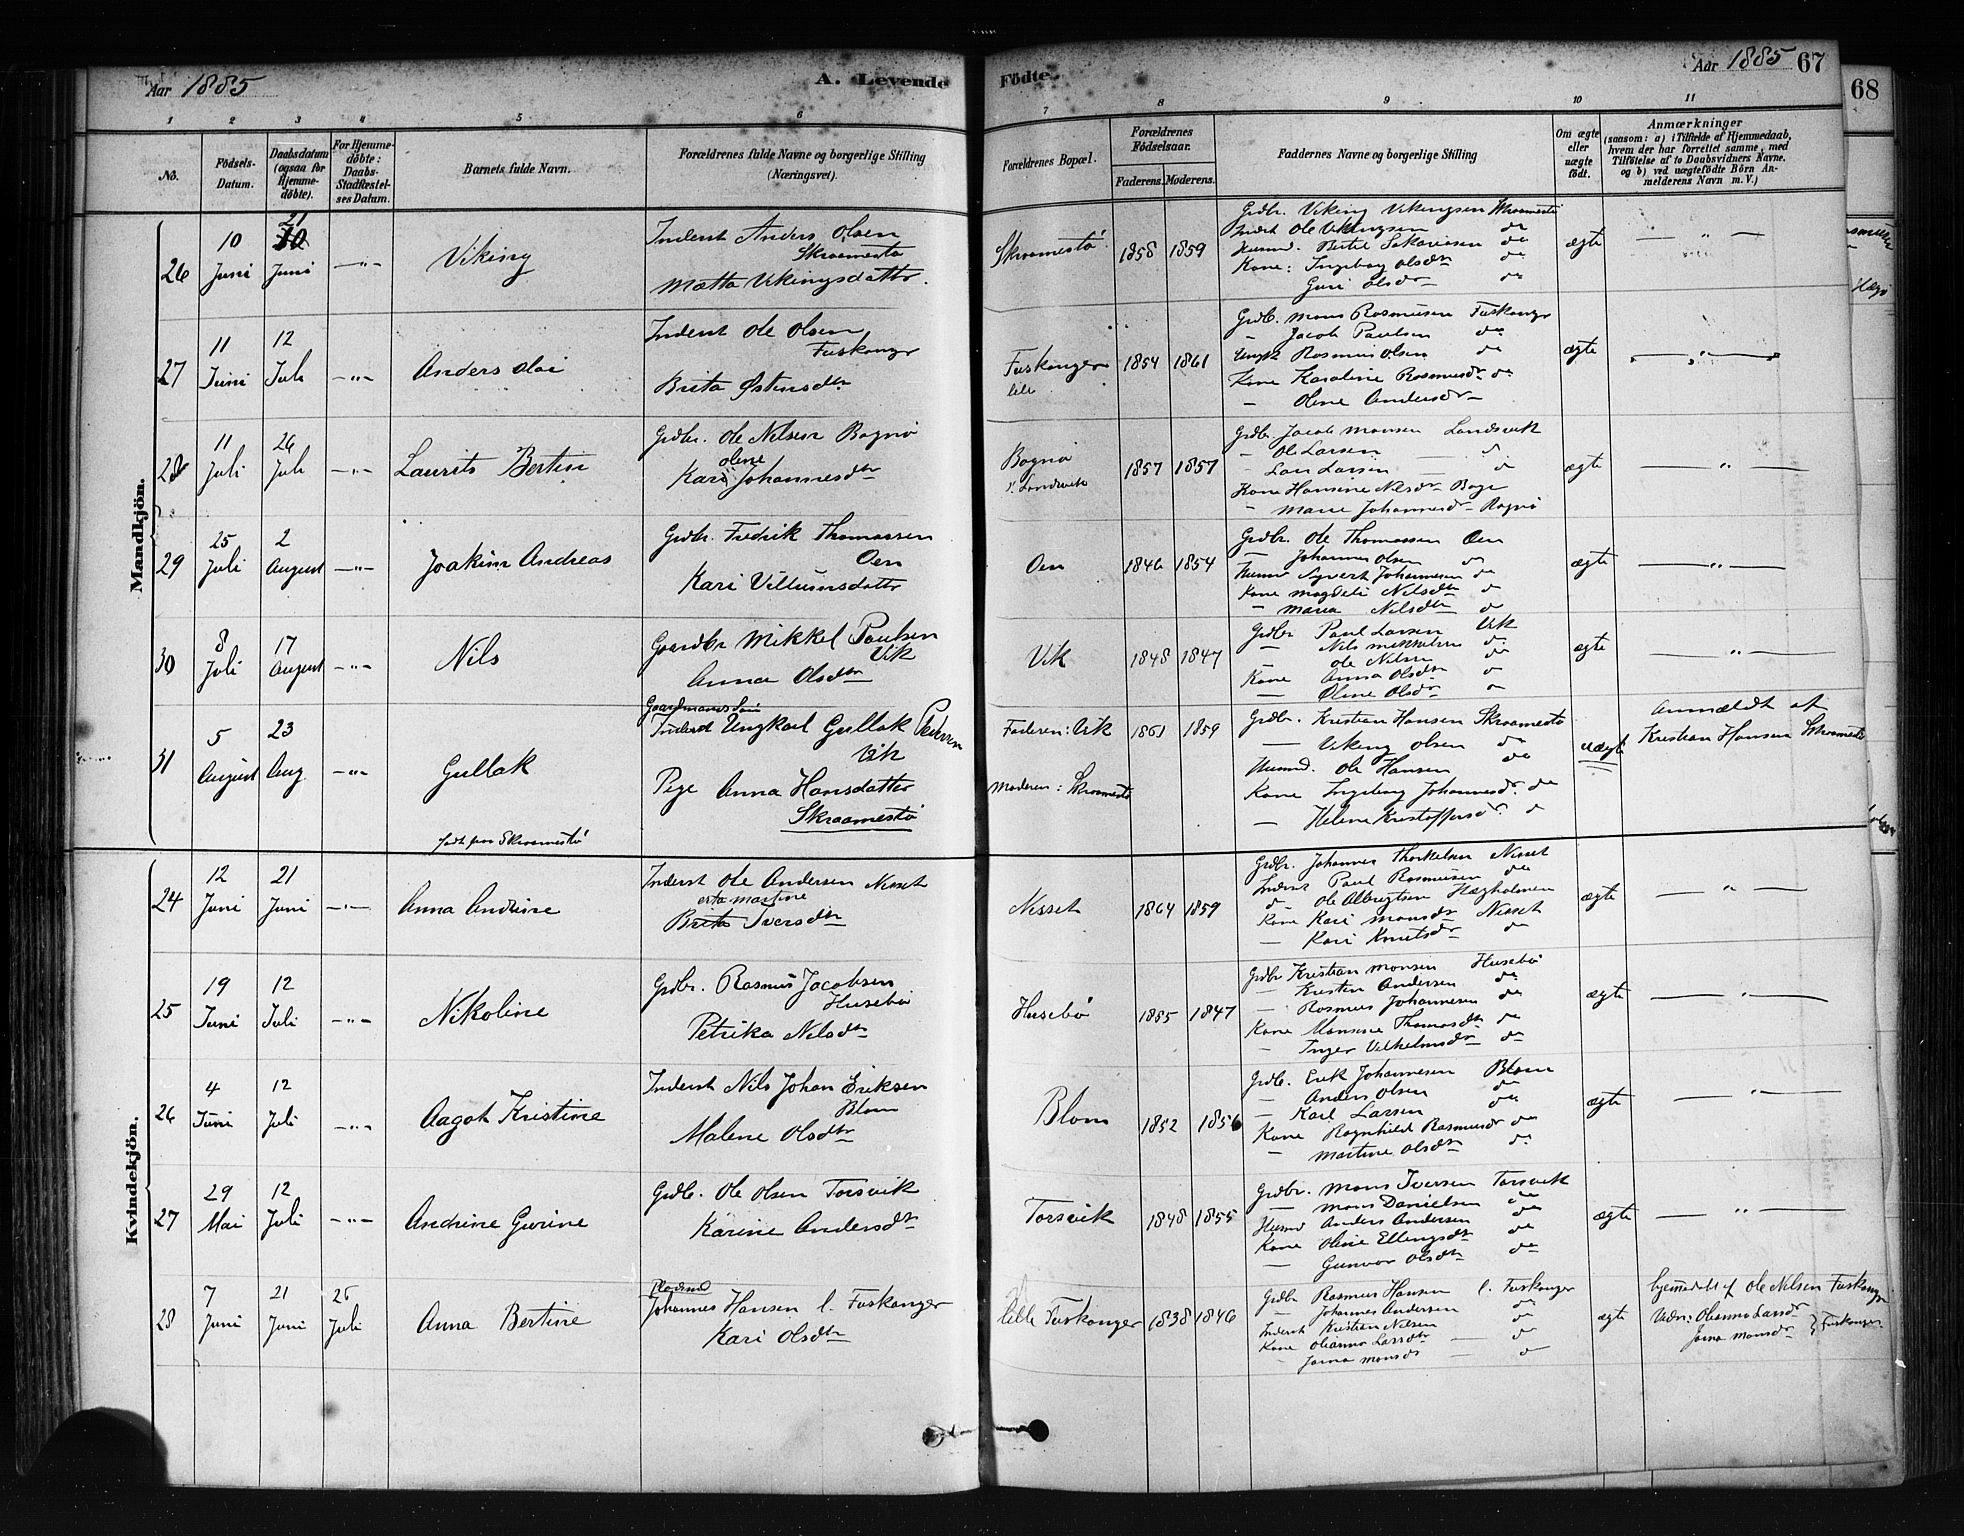 Aar 1885
A. Levende Fødte.
Aar 1885 67
68
1 2 3 4 5 6 7 8 9 10 11
No.
Fødsels-Datum.
Daabsdatum (ogsaa for Hjemmedøbte).
For Hjemmedøbte: Daabs-Stadfæstelses Datum.
Barnets fulde Navn.
Forældrenes fulde Navne og borgerlige Stilling (Næringsvei).
Forældrenes Bopæl.
Forældrenes Fødselsaar.
Faderens. Moderens.
Faddernes Navne og borgerlige Stilling
Om ægte eller uægte født.
Anmærkninger
(saasom: a) i Tilfælde af Hjemmedaab, hvem der har forrettet samme, med Tilføielse af to Daabsvidners Navne. og b) ved uægtefødte Børn Anmelderens Navn m. V.)
Mandkjön.
26 10 Juni 21 Juni —"— Viking
Inderst Anders Olsen
Skraamestø
Matta Vikingsdatter.
Skraamestø 1858 1859
Grdbr. Viking Vikingsen Skraamestø
Inderst Ole Vikingsen do
Kone: Ingeborg Olsdtr do
Guri Olsdr do
ægte — " —
27 11 Juni 12 Juli —"— Anders Olai
Inderst Ole Olsen
Fuskanger
Brita Østensdtr
Fuskanger lille 1854 1861
Grdb. Mons Rasmusen Fuskanger
— Jacob Paulsen do
Ungk Rasmus Olsen do
Kone Karoline Rasmusdr do
— Oline Andersdr —
ægte — " —
28 11 Juli 26 Juli —"— Laurits Bertin
Grdbr. Ole Nilsen Bognø
Oline
Kari Johannesdtr
Bognø 1857 1857
Grdbr. Jacob Monsen Landsvik
— Ole Larsen — d
— Lars Larsen d
Kone Hansine Nilsdr Boge
— Marie Johannesdr Bognø
ægte — " —
29 25 Juli 2 August —"— Joakim Andreas
Grdbr. Fredrik Thomassen
Oen
Kari Villumsdatter
Oen 1846 1854
Grdbr. Ole Thomassen Oen
— Johannes Olsen do
Husmd Syvert Johannesen do
Kone Magdeli Nilsdtr do
— Maria Nilsdtr do
ægte — " —
30 8 Juli 17 August —"— Nils
Gaardbr Mikkel Paulsen
Vik
Anna Olsdtr
Vik 1848 1847
Grdbr Paul Larsen Vik
— Nils Mikkelsen do
— Ole Nilsen do
Kone Anna Olsdtr do
— Oline Olsdr do
ægte — " —
31 5 August 23 Aug —"— Gullak
født paa Skraamestø
Gaardmands Søn
Inderst Ungkarl Gullak Pedersen
Vik
Pige Anna Hansdatter
Skraamestø
Faderen: Vik 1861 1859
Moderen: Skraamestø
Grdbr. Kristian Hansen Skraamestø
— Viking Olsen do
Husmd. Ole Hansen do
Kone Ingeborg Johannesdr. do
— Helene Kristoffersdr. do
uægte
Anmeldt af
Kristian Hansen Skraamestø
Kvindekjön.
24 12 Juni 21 Juni —"— Anna Andrine
Inderst Ole Andersen Nesset
Martine
Brita Iversdtr
Nesset 1864 1859
Grdbr. Johannes Thorkelsen Nesset
Inderst Paul Rasmusen do
do Ole Albrigtsen Hægholmen
Kone Kari Monsdr Nesset
— Kari Knutsdr do
ægte — " —
25 19 Juni 12 Juli —"— Nikoline
Grdbr. Rasmus Jacobsen
Husebø
Petrika Nilsdtr
Husebø 1855 1847
Grdbr Kristian Monsen Husebø
— Kristen Andersen do
— Rasmus Johannesen do
Kone Monsine Thomasdtr do
— Inger Vilhelmsdr do
ægte — " —
26 4 Juni 12 Juli —"— Aagot Kristine
Inderst Nils Johan Eriksen
Blom
Malene Olsdtr
Blom 1852 1856
Grdb. Erik Johannesen Blom
— Anders Olsen do
— Karl Larsen do
Kone Ragnhild Rasmusdr do
— Martine Olsdtr do
ægte — " —
27 29 Mai 12 Juli —"— Andrine Gurine
Grdb. Ole Olsen Torsvik
Karine Andersdtr
Torsvik 1848 1855
Grdbr. Mons Iversen Torsvik
— Mons Danielsen do
Husmd Anders Andersen do
Kone Oline Ellingsdtr do
— Gunvor Olsdtr do
ægte — " —
28 7 Juni 21 Juni 26 Juli Anna Bertine
Pladsmd
Johannes Hansen l. Fuskanger
Kari Olsdtr
lille Fuskanger 1838 1846
Grdbr Rasmus Hansen l. Fuskanger
— Johannes Andersen do
Inderst Kristian Nilsen do
Kone Olianna Larsdtr — do
— Jorna Monsdr — do
ægte
hjemdøbt af Ole Nilsen Fuskanger
Vidn: Olianna Larsdr
Jorna Monsdr } Fuskanger